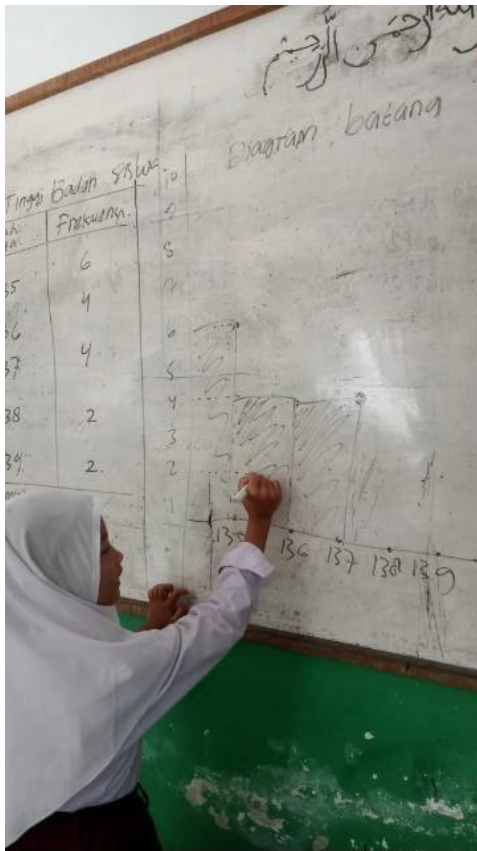 الرحمن الرحيم
Diagram batang
Tinggi Badan siswa
Frekuensi
35 6
36 4
37 4
38 2
39 2
10
9
8
7
6
5
4
3
2
1
135 136 137 138 139